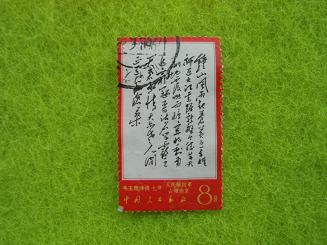 鍾山風雨起蒼黃百万雄
師過大江虎踞龍盤今勝昔天
翻地覆慨而慷宜將剩勇
追窮寇不可沽名學霸王
天若有情天亦老人間
正道是滄桑
毛主席诗词 七律 人民解放军
占领南京
中国人民邮政 8分